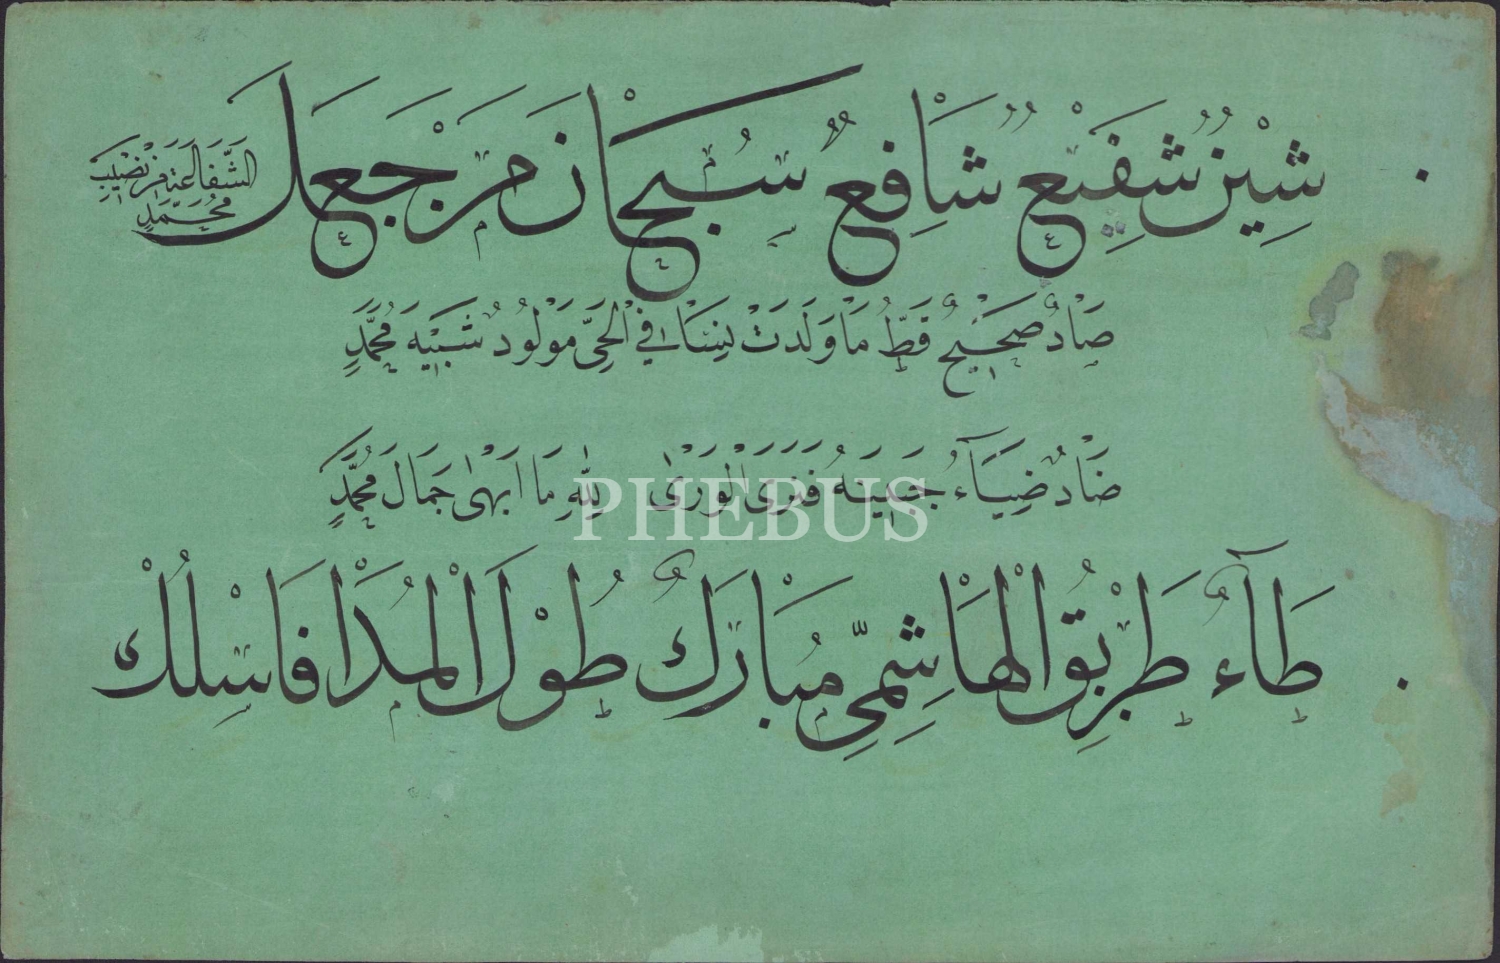 شِينٌ شَفِيعٌ شَافِعٌ سُبْحَانَ مَنْ جَعَلَ
الشَّفَاعَةَ مِنْ نَصِيبِ
مُحَمَّدٍ
صَادٌ صَحِيحٌ قَطُّ مَا وَلَدَتْ نِسَا فِي الْحَيِّ مَوْلُودٌ شَبِيهَ مُحَمَّدٍ
ضَادٌ ضِيَآءُ جَبِينِهُ فَتَرَى الْوَرَى لِلّٰهِ مَا اَبْهَى جَمَالَ مُحَمَّدٍ
PHEBUS
طَآءٌ طَرِيقُ الْهَاشِمِيِّ مُبَارَكٌ طُولَ الْمُدَا فَاسْلُكْ